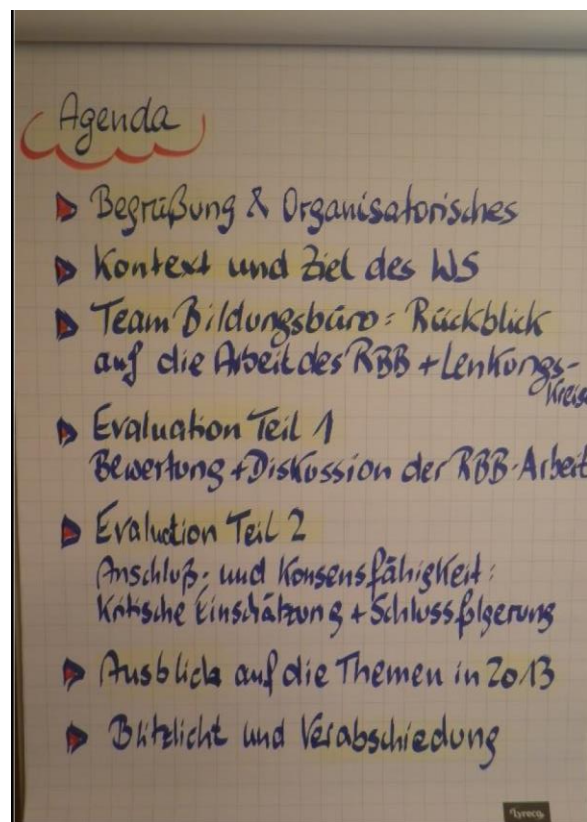 Agenda
Begrüßung & Organisatorisches
Kontext und Ziel des WS
Team Bildungsbüro: Rückblick
auf die Arbeit des RBB + Lenkungs-
kreise
Evaluation Teil 1
Bewertung + Diskussion der RBB-Arbeit
Evaluation Teil 2
Anschluß- und Konsensfähigkeit:
Kritische Einschätzung + Schlussfolgerung
Ausblick auf die Themen in 2013
Blitzlicht und Verabschiedung